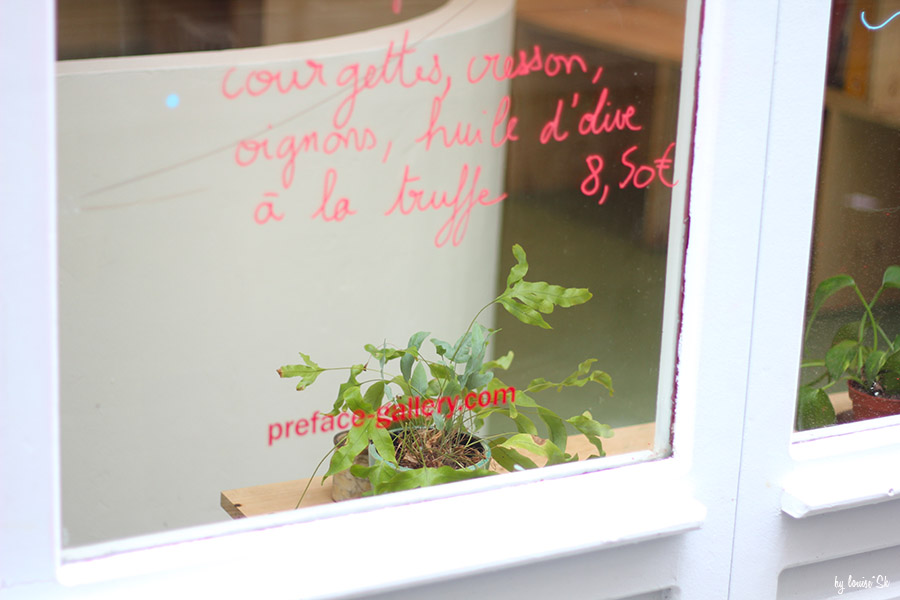 courgettes, cresson,
oignons, huile d'olive
à la truffe 8,50€
preface-gallery.com
by louise*Sk